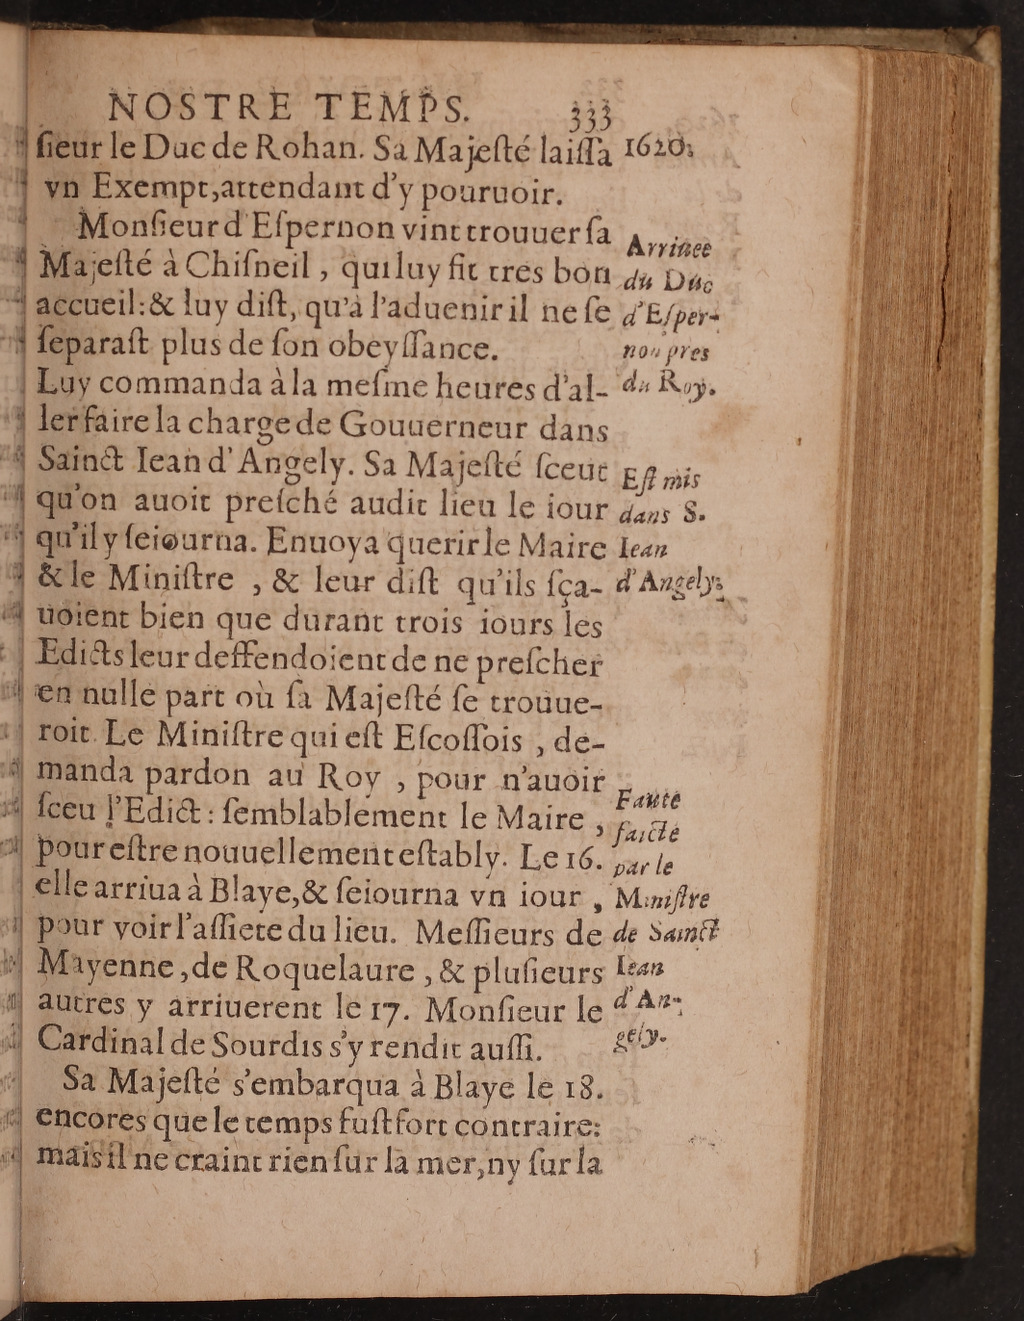 NOSTRE TEMPS. 333
ſieur le Duc de Rohan. Sa Majeſté laiſſa 1620.
vn Exempt, attendant d'y pouruoir.
Monſieur d'Eſpernon vint trouuer ſa
Majeſté à Chiſneil, qui luy fit tres bon
accueil: & luy diſt, qu'à l'aduenir il ne ſe
ſeparaſt plus de ſon obeyſſance.
Luy commanda à la meſme heures d'al-
ler faire la charge de Gouuerneur dans
Sainct Iean d'Angely. Sa Majeſté ſceut
qu'on auoit preſché audit lieu le iour
qu'il y ſeiourna. Enuoya querir le Maire
& le Miniſtre, & leur diſt qu'ils ſça-
uoient bien que durant trois iours les
Edicts leur deffendoient de ne preſcher
en nulle part où ſa Majeſté ſe trouue-
roit. Le Miniſtre qui eſt Eſcoſſois, de-
manda pardon au Roy, pour n'auoir
ſceu l'Edict: ſemblablement le Maire,
pour eſtre nouuellement eſtably. Le 16.
elle arriua à Blaye, & ſeiourna vn iour,
pour voir l'aſſiete du lieu. Meſſieurs de
Mayenne, de Roquelaure, & pluſieurs
autres y arriuerent le 17. Monſieur le
Cardinal de Sourdis s'y rendit auſſi.
Sa Majeſté s'embarqua à Blaye le 18.
encores que le temps fuſt fort contraire:
mais il ne craint rien ſur la mer, ny ſur la
Arriuee
du Duc
d'Eſper-
non pres
du Roy.
Eſt mis
dans S.
Iean
d'Angely.
Faute
faicte
par le
Miniſtre
de Sainct
Iean
d'An-
gely.